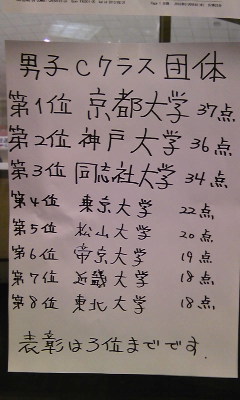 男子Cクラス団体
第1位 京都大学 37点
第2位 神戸大学 36点
第3位 同志社大学 34点
第4位 東京大学 22点
第5位 松山大学 20点
第6位 帝京大学 19点
第7位 近畿大学 18点
第8位 東北大学 18点
表彰は3位までです.